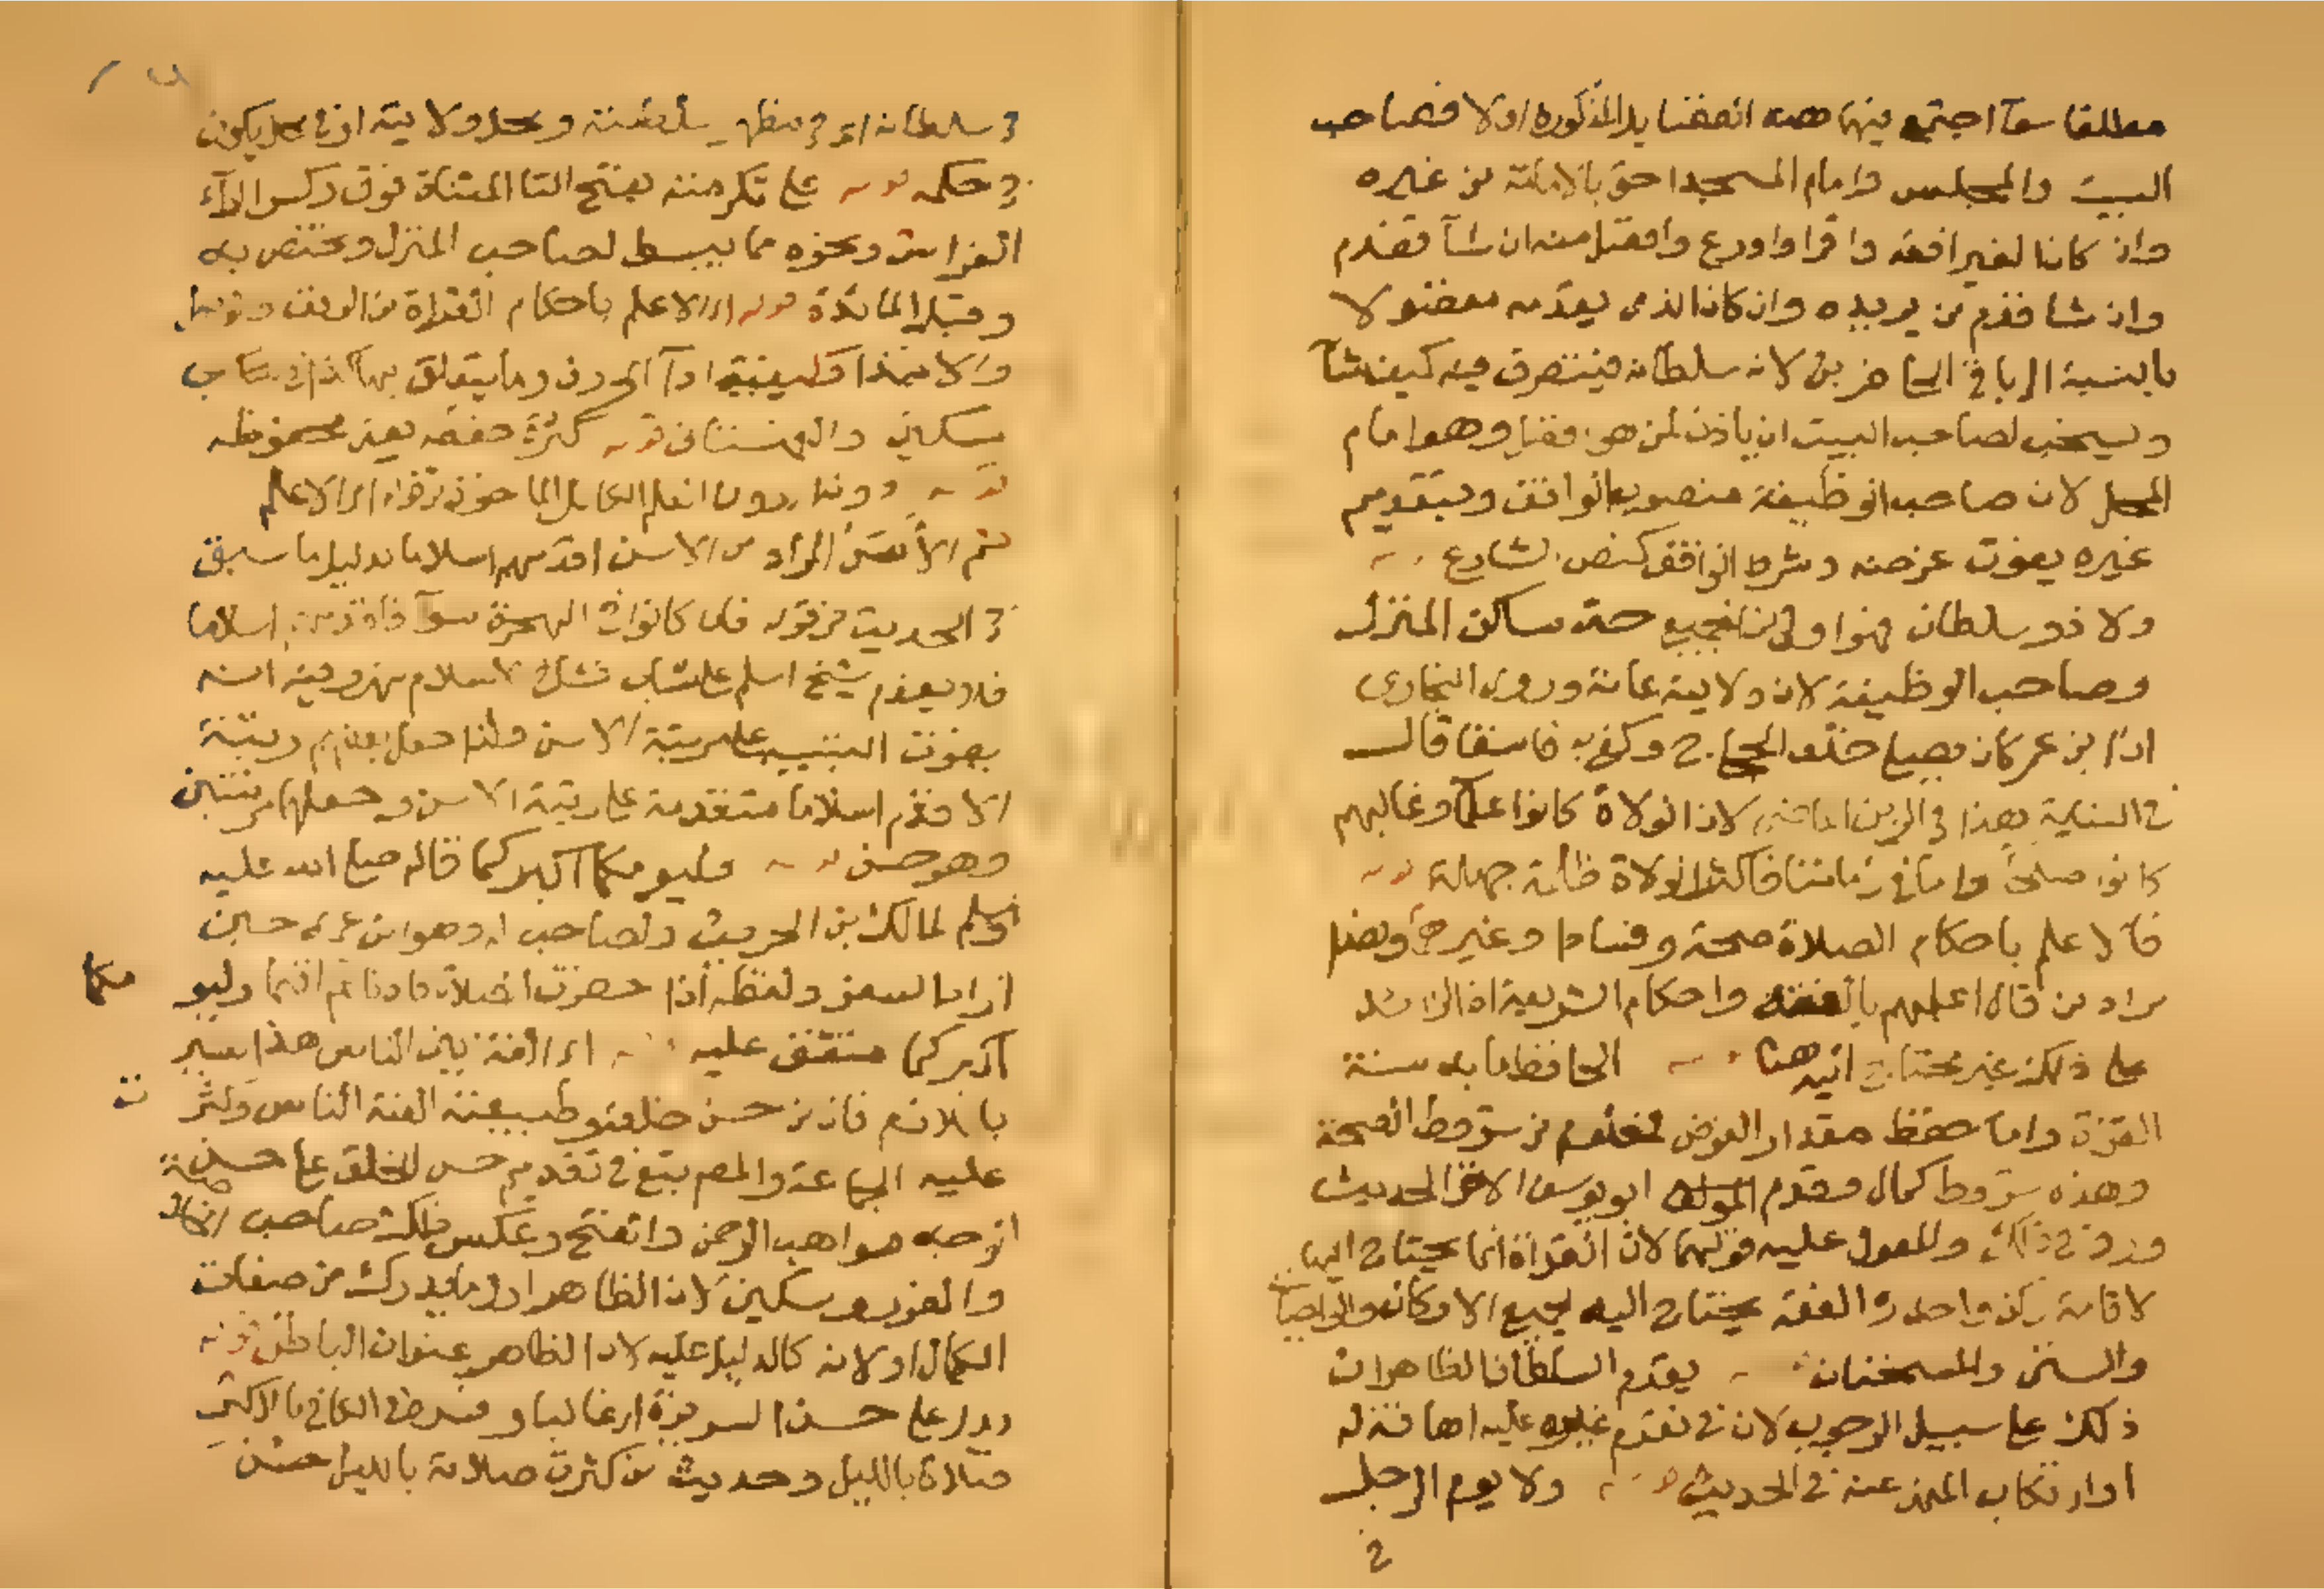 مطلقا سوآ اجتمع فيهما هذه الفضايل المذكورة اولا فصاحب
البيت والمجلس وامام المسجد احق بالامامة من غيره
وان كان الغير افقه واقرا واورع وافضل منه ان شآ تقدم
وان شا قدم من يريده وان كان الذى يقدمه مفضولا
بالنسبة الى باقى الحاضرين لانه سلطانه فيتصرف فيه كيف شآ
ويستحب لصاحب البيت ان ياذن لمن هو افضل وهو امام
المحل لان صاحب الوظيفة منصوب الواقف وبتقديم
غيره يفوت غرضه وشرط الواقف كنص الشارع
ولا ذو سلطان فهو اولى من الجميع حتى ساكن المنزل
وصاحب الوظيفة لان ولايته عامة وروى البخارى
ان ابن عمر كان يصلى خلف الحجاج وكفى به فاسقا قال
فى البناية هذا فى الزمن الماضى لان الولاة كانوا علمآ وغالبهم
كانوا صلحآ واما فى زماننا فاكثر الولاة ظلمة جهلة
فالاعلم باحكام الصلاة صحة وفسادا وغيرها وهذا
مراد من قال اعلمهم بالفقه واحكام الشريعة اذ الزائد
على ذلك غير محتاج اليه هنا الحافظ ما به سنة
القرآة واما حفظ مقدار الفرض فمن شروط الصحة
وهذه شروط كمال وقدم ابو يوسف الاقرا لحديث
ورد فى ذلك والمعول عليه قولهما لان القراة انما يحتاج اليها
لاقامة ركن واحد والفقه يحتاج اليه لجميع الاركان والواجبات
والسنن والمستحبات يقدم السلطان الظاهر ان
ذلك على سبيل الوجوب لان فى تقدم غيره عليه اهانة له
او ارتكاب المنهى عنه فى الحديث ولا يوم الرجل
فى سلطانه اى فى مظهر سلطنته ومحل ولايته او فى محل يكون
فى حكمه قوله على تكرمته بفتح التا المثناة فوق وكسر الرآء
الفراش ونحوه مما يبسط لصاحب المنزل ويختص به
وقيل المائدة قوله اى الاعلم باحكام القراة من الوقف والوصل
والابتدا وكيفية ادآ الحروف وما يتعلق بها
مسكين والقهستانى قوله كثرة حفظه يعنى محفوظه
قوله
ثم الاسن المراد من الاسن اقدمهم اسلاما بدليل ما سبق
فى الحديث من قوله فان كانوا فى الهجرة سوآ فاقدمهم اسلاما
فلا يقدم شيخ اسلم على شاب نشا فى الاسلام نهر وفيه انه
يفوت التنبيه على مرتبة الاسن ولذا جعل بعضهم رتبة
الاقدم اسلاما متقدمة على رتبة الاسن وجعلها مرتبتين
وهو حسن قوله وليومكما اكبركما قاله صلى الله عليه
وسلم لمالك بن الحويرث ولصاحب له وهو ابن عم له حين
ارادا السفر ولفظه اذا حضرت الصلاة فاذنا ثم اقيما وليو
مكما
اكبركما متفق عليه اى الفة بين الناس هذا تفسير
باللازم فان من حسن خلقه وطبيعته الفته الناس وكثرت
عليه الجماعة والمصنف تبع فى تقديم حسن الخلق على حسن
الوجه مواهب الرحمن والفتح وعكس ذلك صاحب
والغرر ومسكين لان الظاهر اول ما يدرك من صفات
الكمال او لانه كالدليل عليه لان الظاهر عنوان الباطن قوله
يدل على حسن السريرة اى غالبا وفسره فى الكافى بالاكثر
صلاة بالليل وحديث من كثرت صلاته بالليل حسن